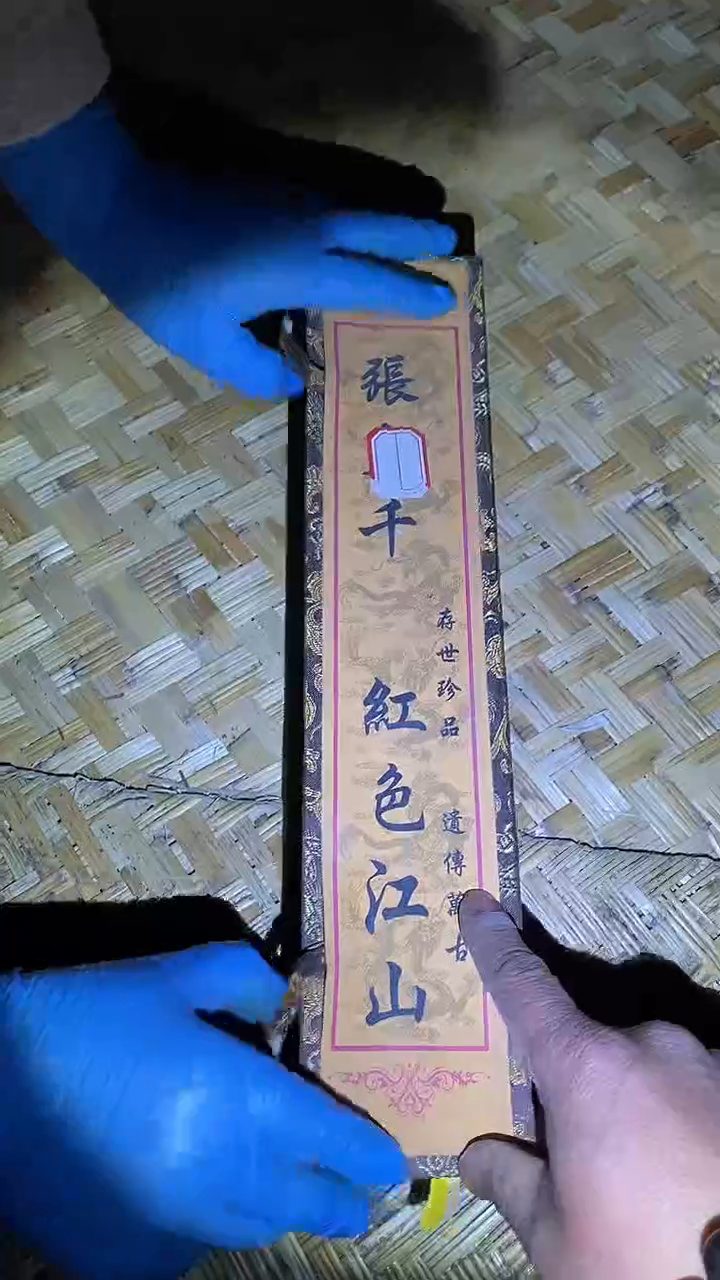 存世珍品 遺傳萬古
張 千 紅色江山